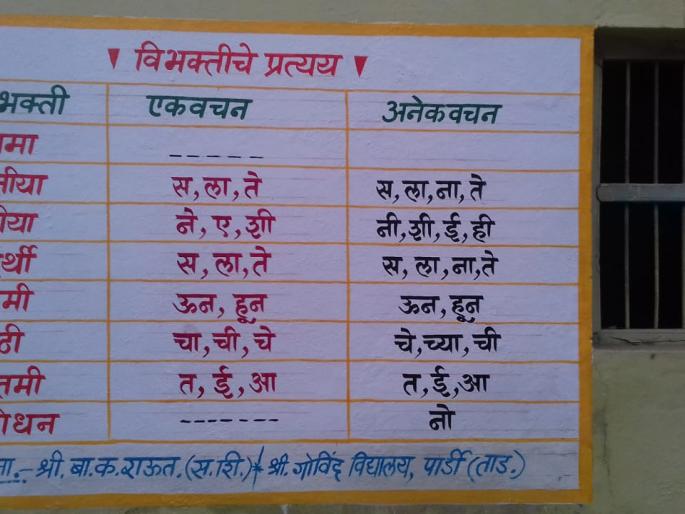 ▼ विभक्तीचे प्रत्यय ▼
भक्ती एकवचन अनेकवचन
मा ------
ीया स, ला, ते स, ला, ना, ते
ीया ने, ए, शी नी, शी, ई, ही
र्थी स, ला, ते स, ला, ना, ते
मी ऊन, हून ऊन, हून
ठी चा, ची, चे चे, च्या, ची
तमी त, ई, आ त, ई, आ
ोधन ------- नो
ना.- श्री. बा. क. राऊत. (स. शि.) * श्री. गोविंद विद्यालय, पार्डी (ताड.)